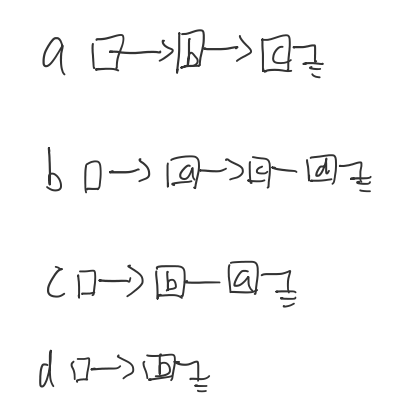 a b c
b a c d
c b a
d b